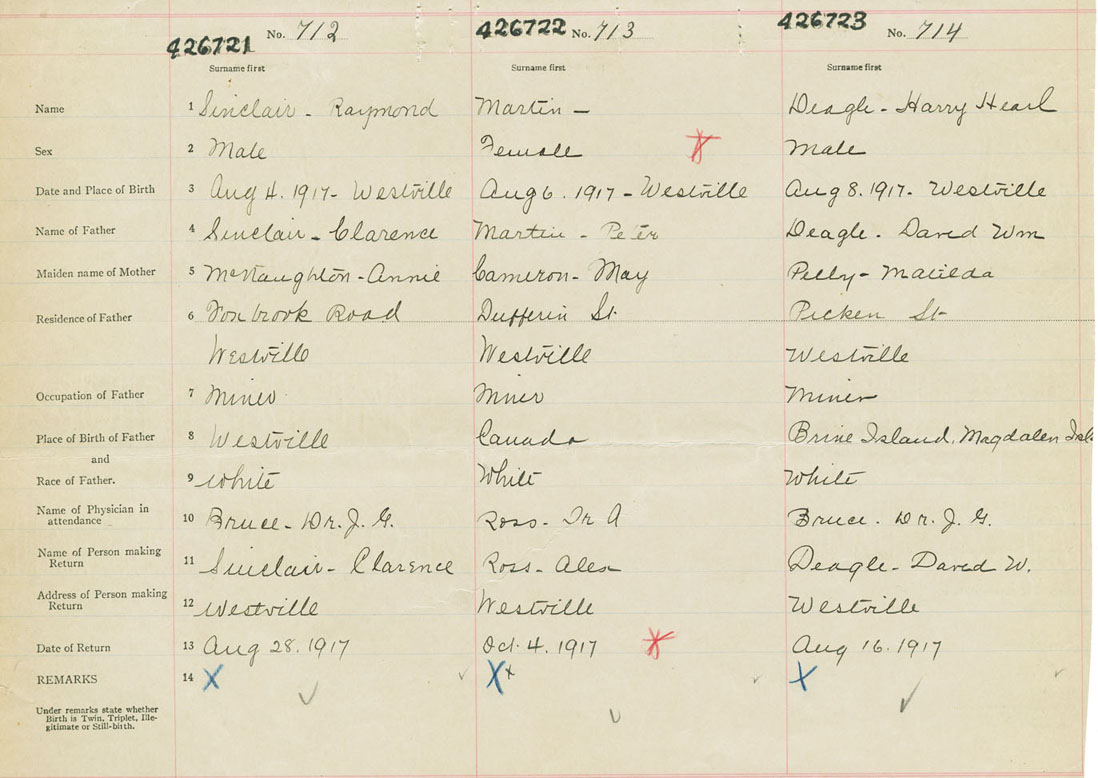 426721 No. 712 426722 No. 713 426723 No. 714
Surname first Surname first Surname first
Name 1 Sinclair - Raymond Martin — Deagle - Harry Hearl
Sex 2 Male Female Male
Date and Place of Birth 3 Aug 4. 1917 - Westville Aug 6. 1917 - Westville Aug 8. 1917 - Westville
Name of Father 4 Sinclair - Clarence Martin - Peter Deagle - David Wm
Maiden name of Mother 5 McNaughton - Annie Cameron - May Pelly - Matilda
Residence of Father 6 Foxbrook Road Dufferin St. Picken St
Westville Westville Westville
Occupation of Father 7 Miner Miner Miner
Place of Birth of Father 8 Westville Canada Brine Island, Magdalen Isls
and
Race of Father. 9 White White White
Name of Physician in
attendance 10 Bruce - Dr. J. G. Ross - Dr A Bruce - Dr. J. G.
Name of Person making
Return 11 Sinclair - Clarence Ross - Alex Deagle - David W.
Address of Person making
Return 12 Westville Westville Westville
Date of Return 13 Aug 28. 1917 Oct. 4. 1917 Aug 16. 1917
REMARKS 14 X X x X
Under remarks state whether
Birth is Twin, Triplet, Ille-
gitimate or Still-birth.